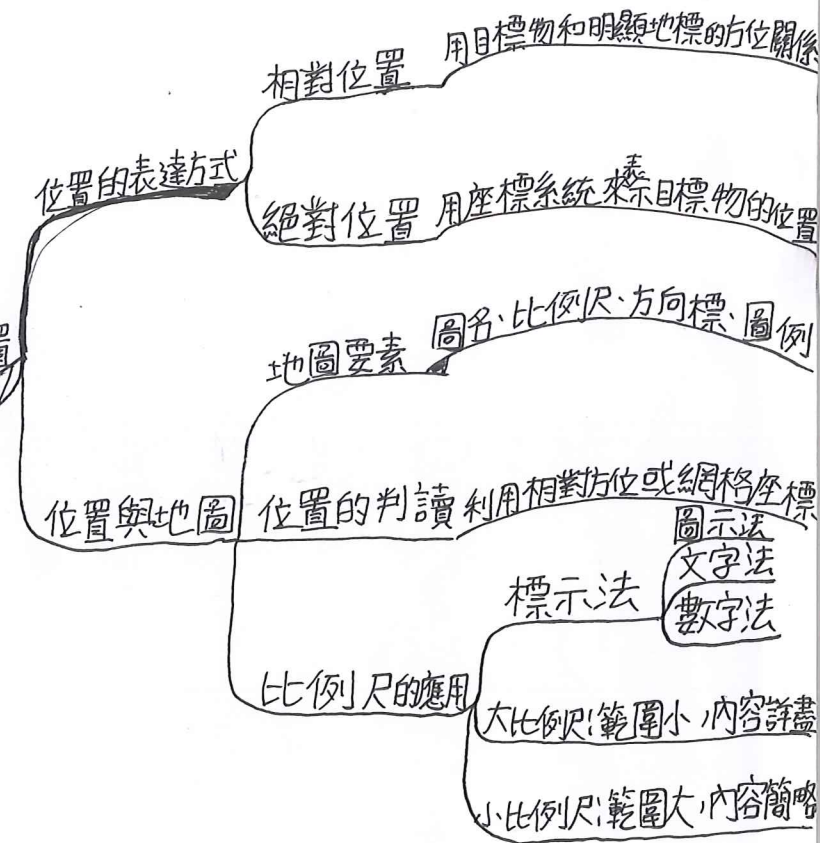 位置的表達方式
相對位置
用目標物和明顯地標的方位關係
絕對位置
用座標系統來表示目標物的位置
置
位置與地圖
地圖要素
圖名、比例尺、方向標、圖例
位置的判讀
利用相對方位或網格座標
比例尺的應用
標示法
圖示法
文字法
數字法
大比例尺:範圍小,內容詳盡
小比例尺:範圍大,內容簡略